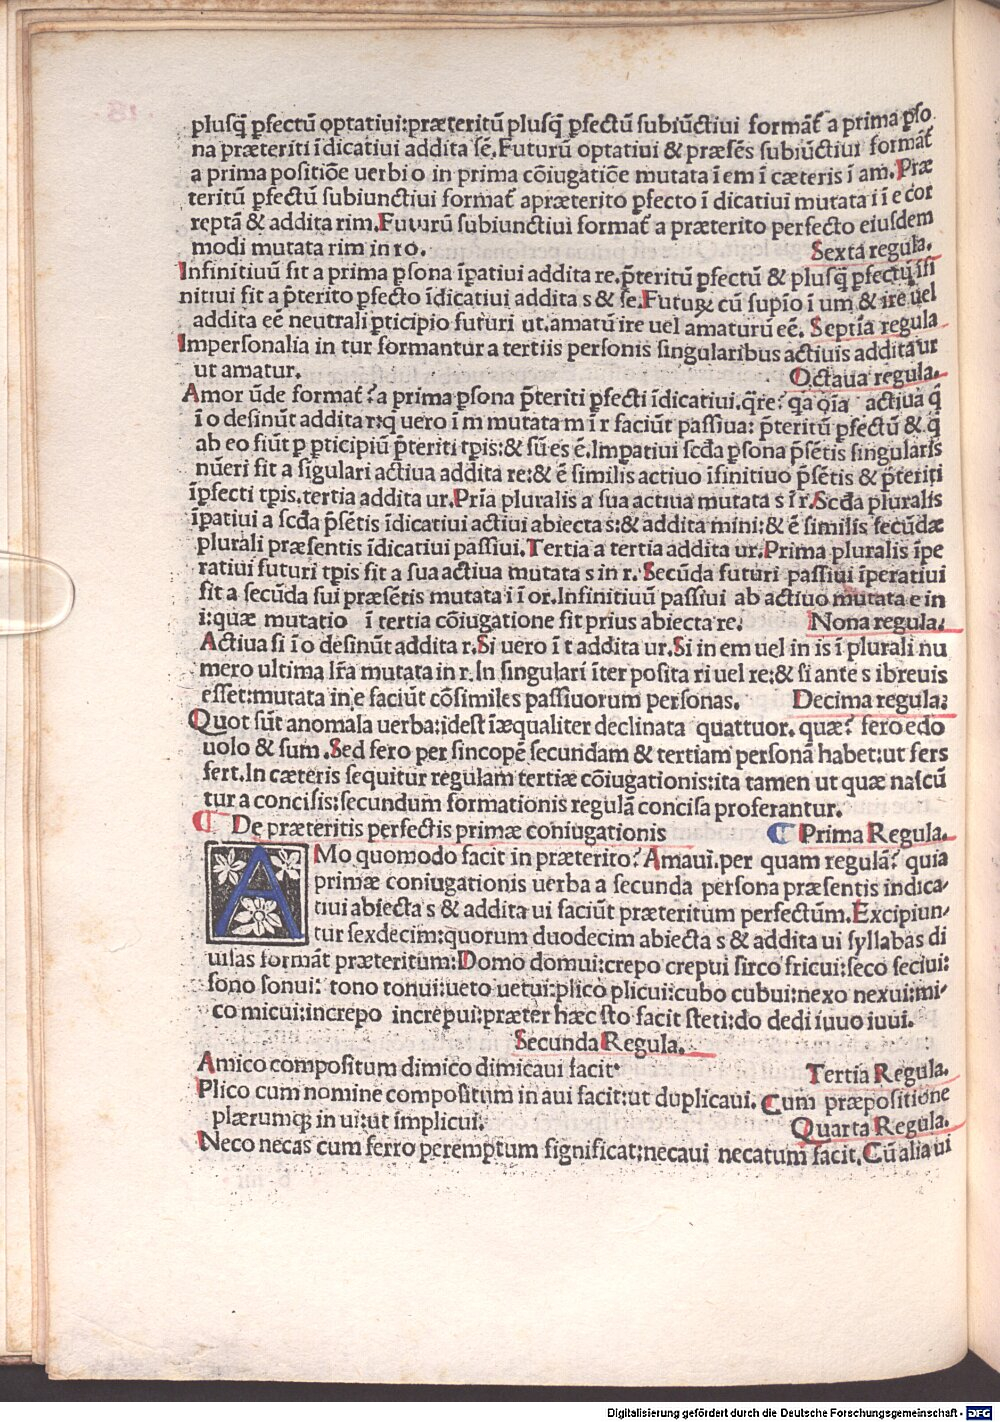 plusq̃ ꝑfectũ optatiui:præteritũ plusq̃ ꝑfectũ subiũctiui formãt̃ a prima ꝑso
na præteriti ĩdicatiui addita sẽ.Futurũ optatiui & præsẽs subiũctiui formãt̃
a prima positiõe uerbi o in prima cõiugatiõe mutata ĩ em ĩ cæteris ĩ am.Præ
teritũ ꝑfectũ subiunctiui format̃ apræterito ꝑfecto ĩ dicatiui mutata i ĩ e cor
reptã & addita rim.Futurũ subiunctiui format̃ a præterito perfecto eiusdem
modi mutata rim in ro. Sexta regula.
Infinitiuũ fit a prima ꝑsona ĩpatiui addita re.p̃teritũ ꝑfectũ & plusq̃ ꝑfectũ ĩfi
nitiui fit a p̃terito ꝑfecto ĩdicatiui addita s & se.Futuꝝ cũ supĩo ĩ um & ire uel
addita eẽ neutrali ꝑticipio futuri ut.amatũ ire uel amaturũ eẽ. Septĩa regula
Impersonalia in tur formantur a tertiis personis singularibus actiuis addita ur
ut amatur. Octaua regula.
Amor ũde format̃?a prima ꝑsona p̃teriti ꝑfecti ĩdicatiui.q̃re?qa oĩa actiua q̃
ĩ o desinũt addita r:q uero ĩ m mutata m ĩ r faciũt passiua: p̃teritũ ꝑfectũ & q̃
ab eo fiũt ꝑ ꝑticipiũ p̃teriti tꝑis:& sũ es ẽ.Imꝑatiui scđa ꝑsona p̃sẽtis singularis
nũeri fit a sĩgulari actiua addita re:& ẽ similis actiuo ĩfinitiuo p̃sẽtis & p̃teriti
ĩꝑfecti tꝑis.tertia addita ur.Pria pluralis a sua actiua mutata s ĩ r.Scđa pluralis
ĩꝑatiui a scđa p̃sẽtis ĩdicatiui actiui abiecta s:& addita mini:& ẽ similis secũdæ
plurali præsentis ĩdicatiui passiui.Tertia a tertia addita ur.Prima pluralis ĩpe
ratiui futuri tꝑis fit a sua actiua mutata s in r. Secũda futuri passiui ĩperatiui
fit a secũda sui præsẽtis mutata i ĩ or.Infinitiuũ passiui ab actiuo mutata e in
i:quæ mutatio ĩ tertia cõiugatione fit prius abiecta re. Nona regula.
Actiua si ĩ o desinũt addita r.Si uero ĩ t addita ur.Si in em uel in is ĩ plurali nu
mero ultima lr̃a mutata in r.In singulari ĩter posita ri uel re:& si ante s ibreuis
esset:mutata in e faciũt cõsimiles passiuorum personas. Decima regula:
Quot sũt anomala uerba:idest ĩæqualiter declinata quattuor.quæ? fero edo
uolo & sum.Sed fero per sincopẽ secundam & tertiam personã habet:ut fers
fert.In cæteris sequitur regulam tertiæ cõiugationis:ita tamen ut quæ nascũ
tur a concisis:secundum formationis regulã concisa proferantur.
¶ De præteritis perfectis primæ coniugationis ¶ Prima Regula.
AMo quomodo facit in præterito?Amaui.per quam regulã? quia
primæ coniugationis uerba a secunda persona præsentis indica-
tiui abiecta s & addita ui faciũt præteritum perfectum.Excipiun-
tur sexdecim:quorum duodecim abiecta s & addita ui syllabas di
uisas formãt præteritum:Domo domui:crepo crepui sirco fricui:seco secui:
sono sonui: tono tonui:ueto uetui:plico plicui:cubo cubui:nexo nexui:mi-
co micui:increpo increpui:præter hæc sto facit steti:do dedi iuuo iuui.
Secunda Regula.
Amico compositum dimico dimicaui facit. Tertia Regula.
Plico cum nomine compositum in aui facit:ut duplicaui. Cum præpositione
plærumqꝫ in ui:ut implicui. Quarta Regula.
Neco necas cum ferro peremptum significat:necaui necatum facit.Cũ alia ui
Digitalisierung gefördert durch die Deutsche Forschungsgemeinschaft - DFG